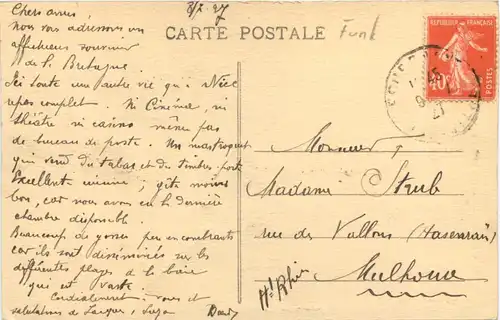 8/7 27
CARTE POSTALE
Funk
REPUBLIQUE FRANÇAISE
40c
POSTES
Chers amis,
Nous vous adressons un
affectueux souvenir
de la Bretagne
Ici toute une autre vie qu'à Nice
repos complet. Ni Cinéma, ni
théâtre ni casino même pas
de bureau de poste. Un mastroquet
qui vend du tabac et du timbre poste
Excellente cuisine, gîte moins
bon, car nous avons eu la dernière
chambre disponible.
Beaucoup de gosses peu encombrants
car ils sont disséminés sur les
différentes plages de la baie
qui est vaste.
Cordialement vous et
salutations de
Monsieur,
Madame Straub
rue des Vallons (Hasenrain)
Mulhouse
Ht Rhin